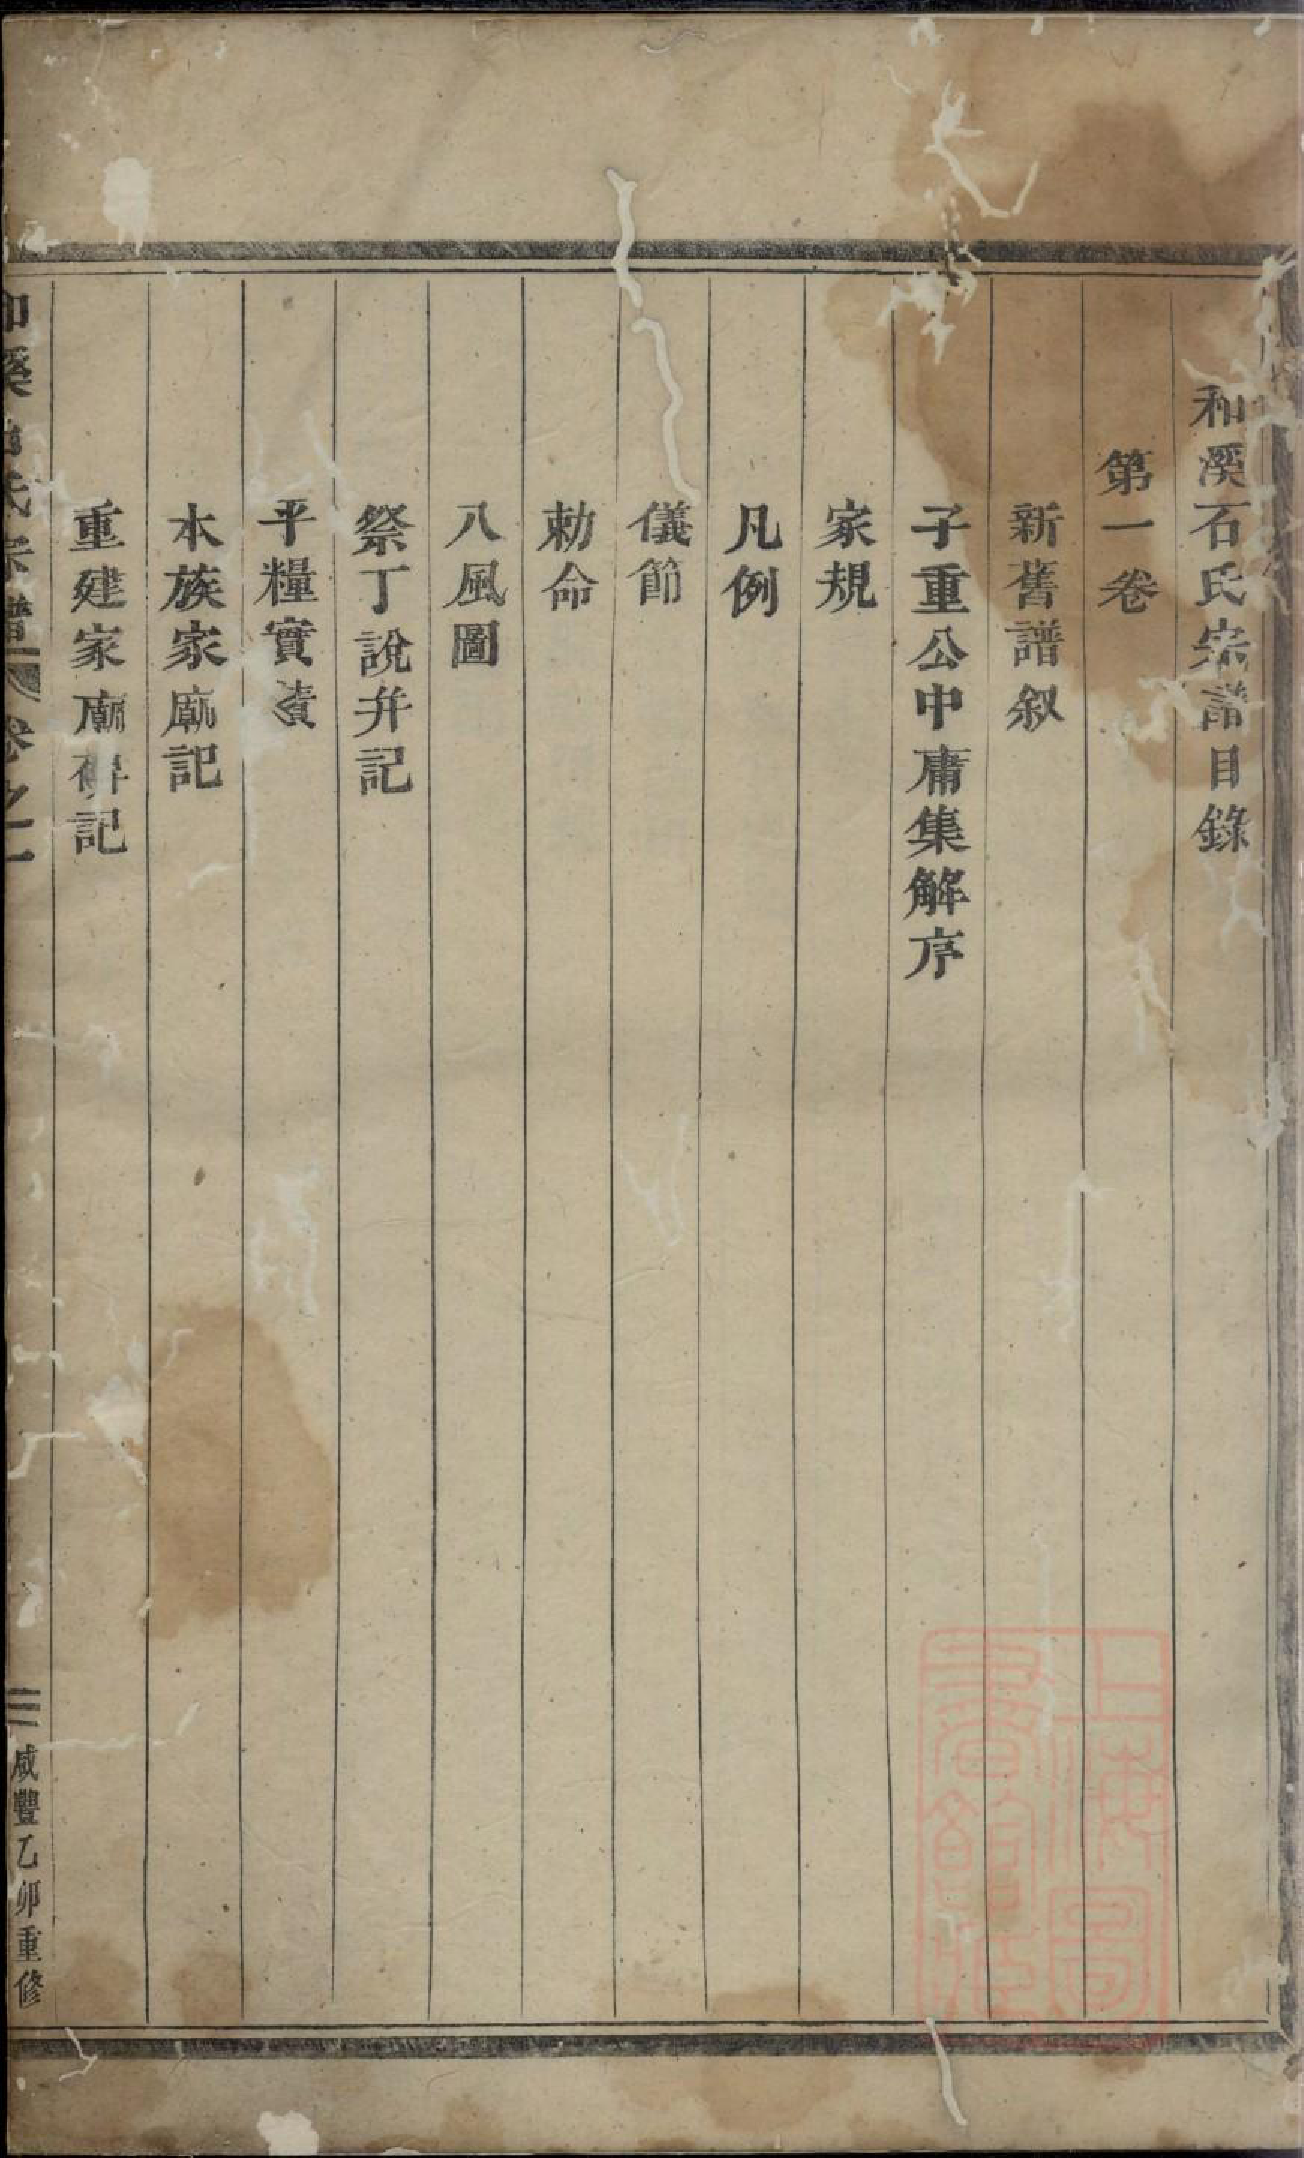 和溪石氏宗譜目錄
第一卷
新舊譜叙
子重公中庸集解序
家規
凡例
儀節
勅命
八風圖
祭丁說并記
平糧實蹟
本族家廟記
重建家廟碑記
和溪石氏宗譜 卷之一
二 咸豐乙卯重修
上海圖書館藏